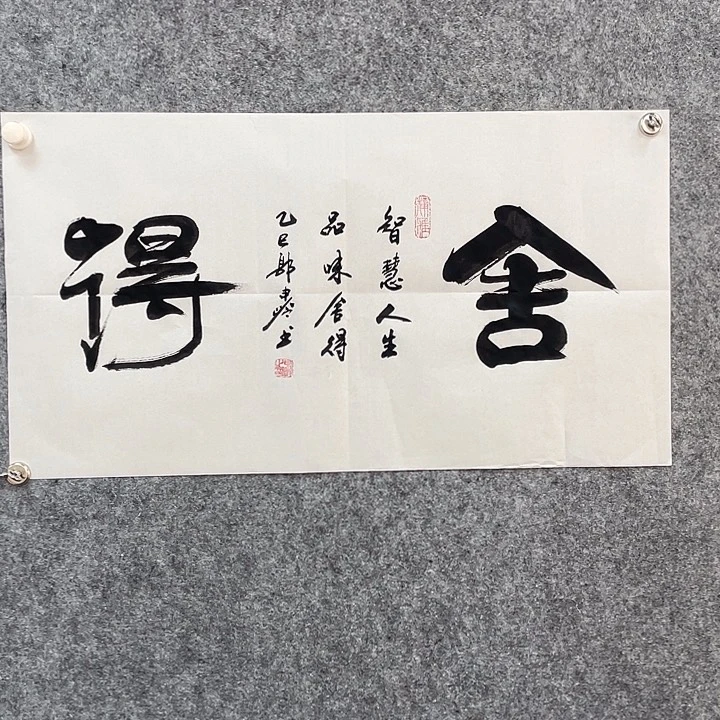 舍
智慧人生
品味舍得
乙巳
书
得